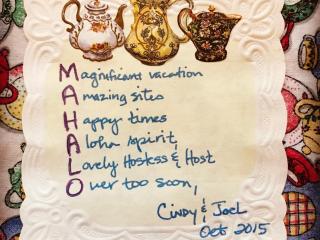 Magnificant vacation
Amazing sites
Happy times
Aloha spirit,
Lovely Hostess & Host
Over too soon,
Cindy & Joel
Oct 2015